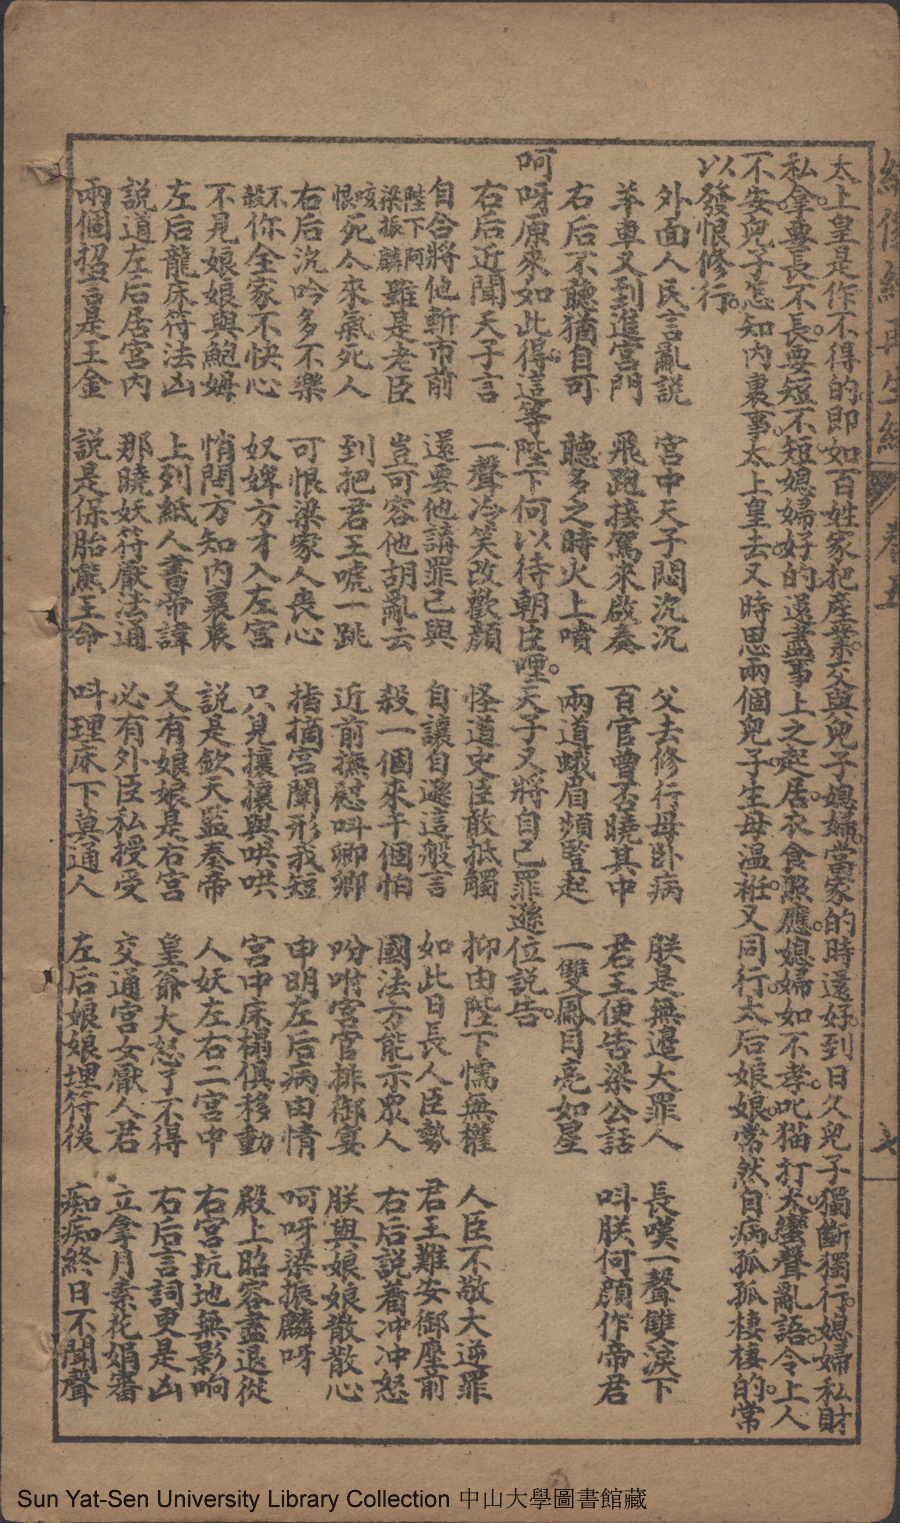 太上皇是作不得的。即如百姓家把產業交與兒子媳婦。當家的時還好。到日久兒子獨斷獨行。媳婦私財
私拿。要長不長。要短不短。媳婦好的還盡事上之起居。衣食照應。媳婦如不孝。叱猫打犬。蠻聲亂語。令上人
不安。兒子怎知內裏事。太上皇去又時思兩個兒子。生母溫袵。又同行。太后娘娘常然自病孤孤棲棲的。常
以發恨修行。
外面人民言亂說 宮中天子悶沉沉 父去修行母卧病 朕是無邊大罪人 長嘆一聲雙淚下
羊車又到進宮門 飛跑接駕來啟奏 百官曾否曉其中 君王便告梁公話 呌朕何顏作帝君
右后不聽猶自可 聽多之時火上噴 兩道蛾眉頻豎起 一雙鳳目亮如星
呵呀原來如此。得這等陛下何以待朝臣哩。天子又將自己罪遜位說告。
右后近聞天子言 一聲冷笑改歡顏 怪道史臣敢抵觸 抑由陛下懦無權 人臣不敬大逆罪
自合將他斬市前 還要他講罪己與 自讓自遜這般言 如此日長人臣勢 君王難安御座前
陛下阿梁振麟雖是老臣 豈可容他胡亂云 殺一個來千個怕 國法方能示眾人 右后說着冲冲怒
恨咳死人來氣死人 到把君王唬一跳 近前撫慰呌卿卿 吩咐宮官排御宴 朕與娘娘散散心
右后沉吟多不樂 可恨梁家人喪心 揩摘宮闈形我短 申明左后病由情 呵呀梁振麟呀
不殺你全家不快心 奴婢方才入左宮 只見攘攘與哄哄 宮中床榻俱移動 殿上昭容盡退從
不見娘娘與鮑姆 悄問方知內裏衷 說是欽天監奏帝 人妖左右二宮中 右宮坑地無影响
左后龍床符法凶 上列紙人書帝諱 又有娘娘是右宮 皇爺大怒了不得 右后言詞更是凶
說道左后居宮內 那曉妖符厭法通 必有外臣私授受 交通宮女厭人君 立拿月素花娟審
兩個招言是王金 說是保胎熊王命 呌理床下莫通人 左后娘娘埋符後 痴痴終日不聞聲
Sun Yat-Sen University Library Collection 中山大學圖書館藏